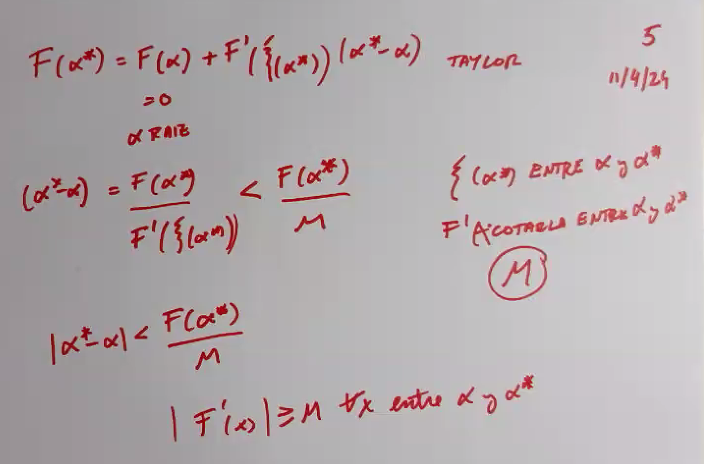 F(α*) = F(α) + F'(ξ(α*)) (α* - α) TAYLOR
5
= 0
11/4/24
α RAIZ
(α* - α) = F(α*) / F'(ξ(α*)) < F(α*) / M
ξ(α*) ENTRE α y α*
F' ACOTARLA ENTRE α y α*
M
|α* - α| < F(α*) / M
| F'(x) | ≥ M ∀x entre α y α*